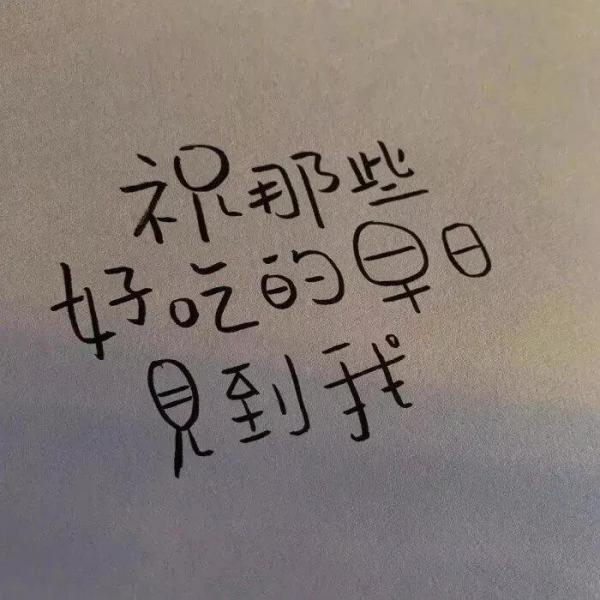 祝那些
好吃的早日
見到我